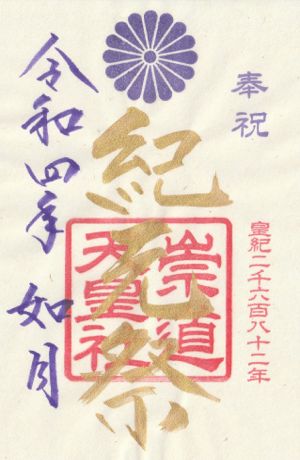 奉祝
皇紀二千六百八十二年
紀元祭
崇道
天皇社
令和四年 如月